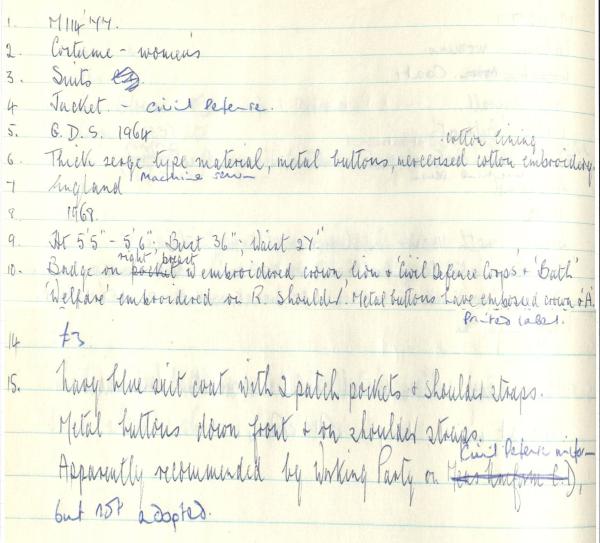 1. M114'77.
2. Costume - women's
3. Suits
4 Jacket. - civil defense.
5. G.D.S. 1964
cotton lining
6. Thick serge type material, metal buttons, mercerised cotton embroidery.
7 England Machine sewn
8. 1968.
9. Ht 5'5" - 5'6", Bust 36", Waist 27"
right breast
10. Badge on pocket w embroidered crown lion + 'Civil Defence Corps' + 'Bath'
'Welfare' embroidered on R. Shoulder. Metal buttons have embossed crown + A.
Printed label.
14 £3
15. Navy blue suit coat with 2 patch pockets + shoulder straps.
Metal buttons down front + on shoulder straps.
Civil Defense uniform
Apparently recommended by Working Party on Mens Uniform
but not adopted.